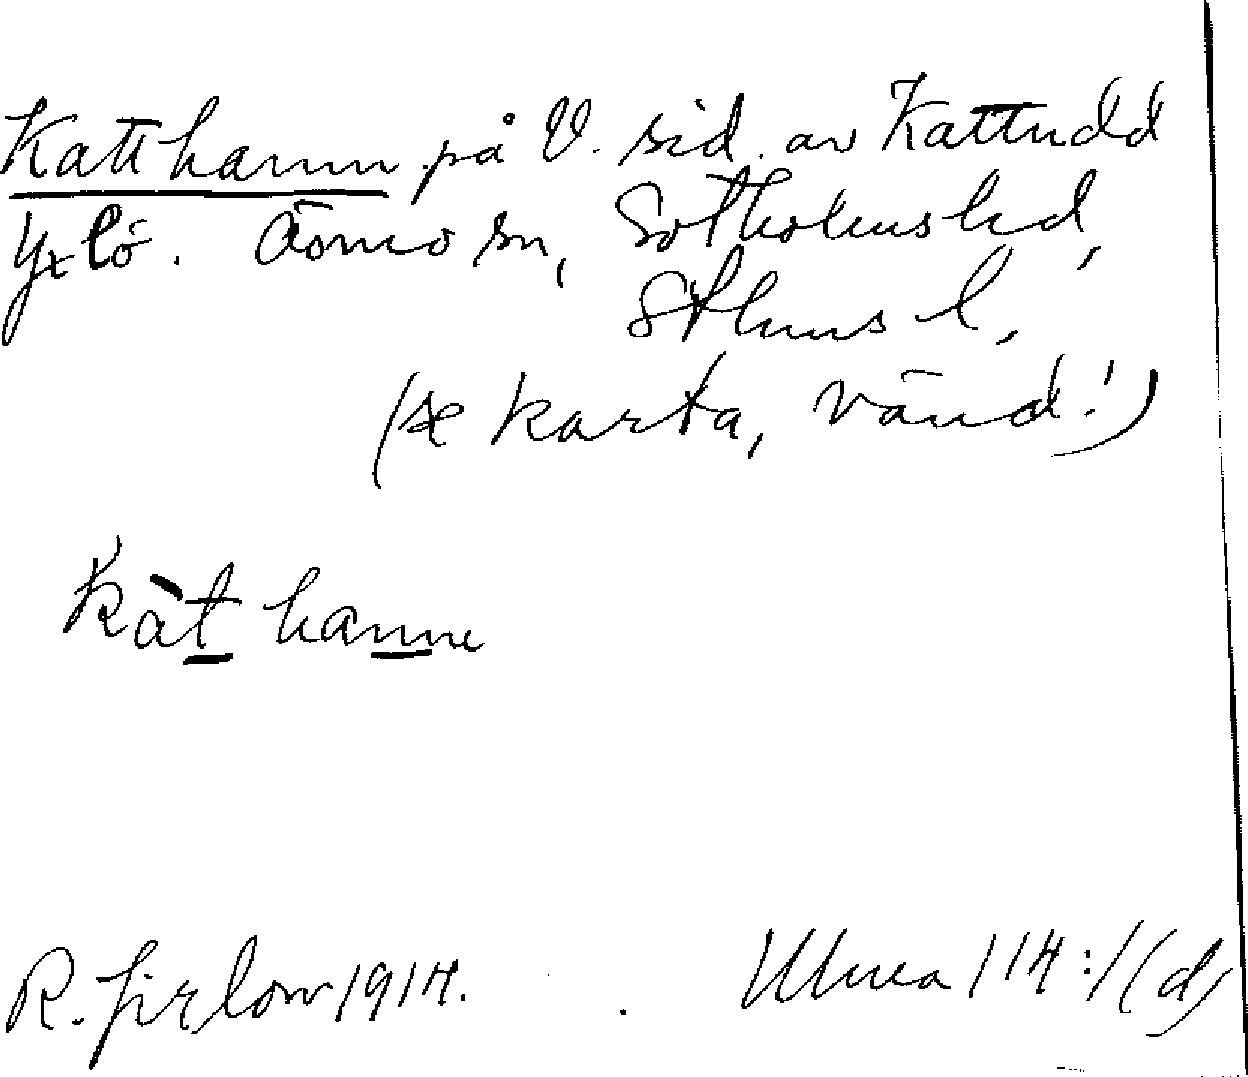 Katthamn på V. sid. av Kattudd
Yxlö. Ösmo sn, Sotholms hd,
Sthms l.
(se karta, vänd!)
kàt hamne
R. Jirlow 1914. 114:1(d)